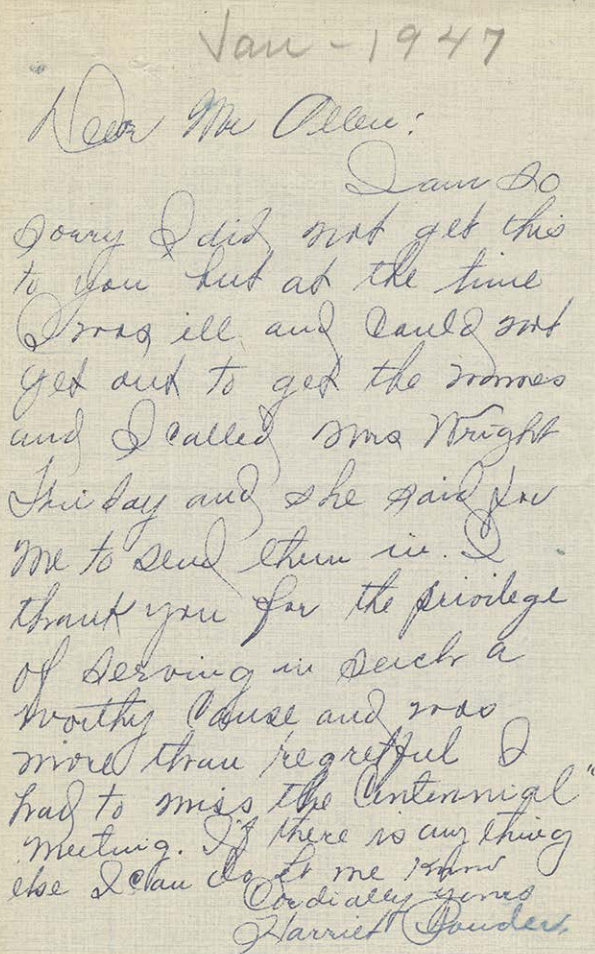 Jan - 1947
Dear Mr Allen:
I am so
sorry I did not get this
to you but at the time
I was ill and could not
get out to get the names
and I called Mrs Wright
Friday and she said for
me to send them in. I
thank you for the privilege
of serving in such a
worthy cause and was
more than regretful I
had to miss the Centennial"
meeting. If there is any thing
else I can do let me know
Cordially yours
Harriet